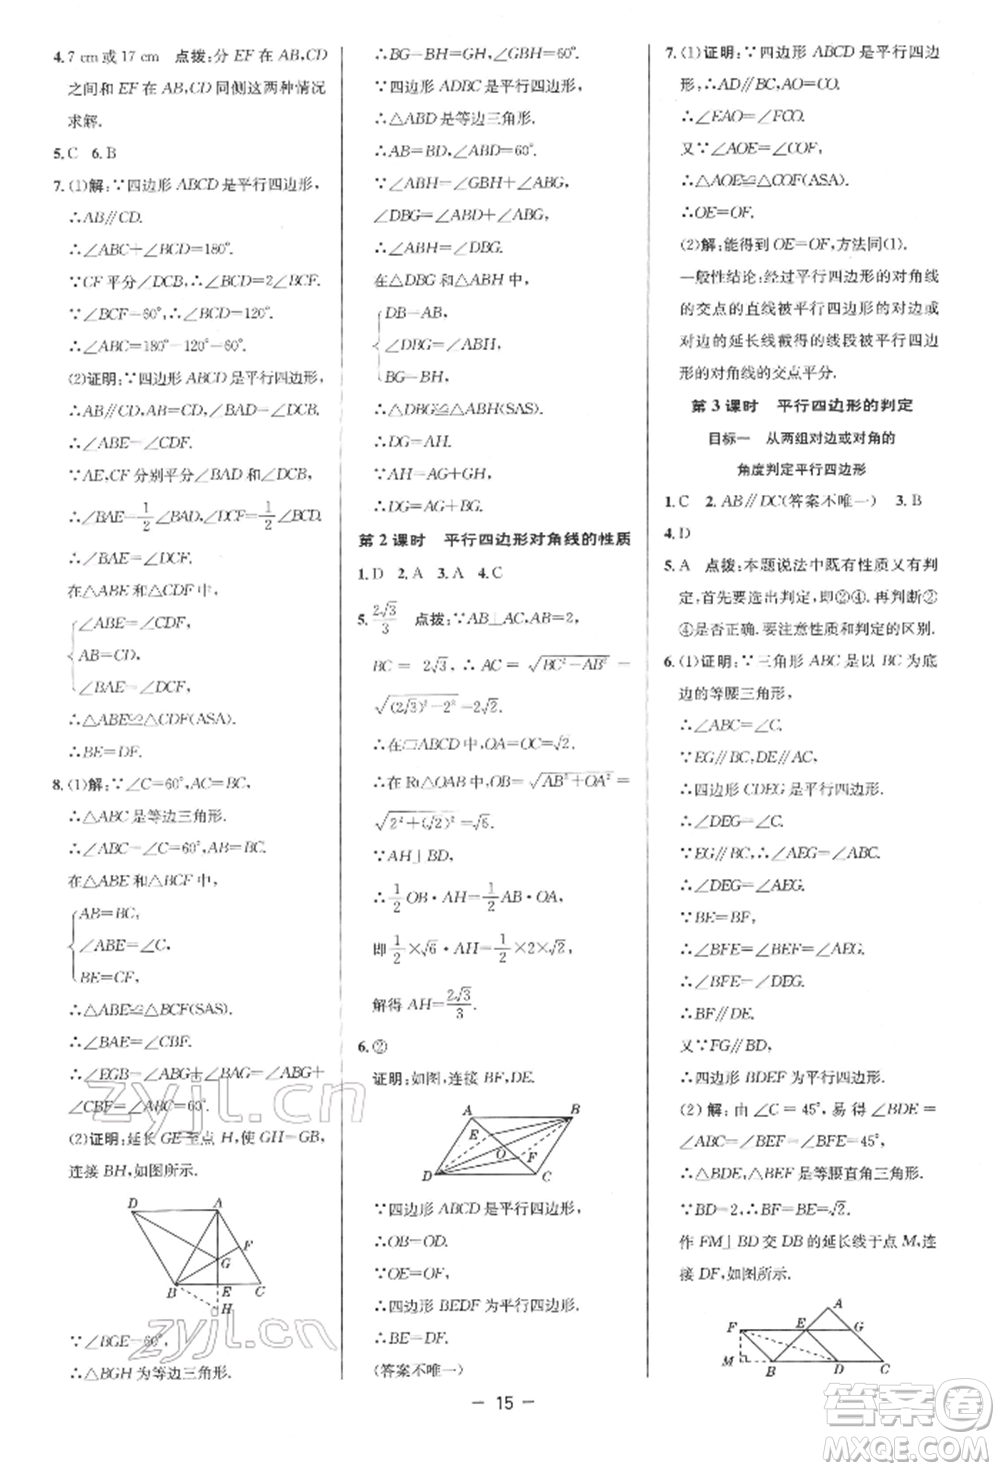 4.7 cm或17 cm 点拨:分EF在AB,CD
之间和EF在AB,CD同侧这两种情况
求解.
5.C 6.B
7.(1)解:∵四边形ABCD是平行四边形,
∴AB∥CD.
∴∠ABC+∠BCD=180°.
∵CF平分∠DCB,∴∠BCD=2∠BCF.
∵∠BCF=60°,∴∠BCD=120°.
∴∠ABC=180°-120°=60°.
(2)证明:∵四边形ABCD是平行四边形,
∴AB∥CD,AB=CD,∠BAD=∠DCB.
∴∠ABE=∠CDF.
∵AE,CF分别平分∠BAD和∠DCB,
∴∠BAE=1/2∠BAD,∠DCF=1/2∠BCD.
∴∠BAE=∠DCF.
在△ABE和△CDF中,
∠ABE=∠CDF,
AB=CD,
∠BAE=∠DCF,
∴△ABE≌△CDF(ASA).
∴BE=DF.
8.(1)解:∵∠C=60°,AC=BC,
∴△ABC是等边三角形.
∴∠ABC=∠C=60°,AB=BC.
在△ABE和△BCF中,
AB=BC,
∠ABE=∠C,
BE=CF,
∴△ABE≌△BCF(SAS).
∴∠BAE=∠CBF.
∴∠EGB=∠ABG+∠BAE=∠ABG+
∠CBF=∠ABC=60°.
(2)证明:延长GE至点H,使GH=GB,
连接BH,如图所示.
D A F G B E C H
∵∠BGE=60°,
∴△BGH为等边三角形.
∴BG=BH=GH,∠GBH=60°.
∵四边形ADBC是平行四边形,
∴△ABD是等边三角形.
∴AB=BD,∠ABD=60°.
∵∠ABH=∠GBH+∠ABG,
∠DBG=∠ABD+∠ABG,
∴∠ABH=∠DBG.
在△DBG和△ABH中,
DB=AB,
∠DBG=∠ABH,
BG=BH,
∴△DBG≌△ABH(SAS).
∴DG=AH.
∵AH=AG+GH,
∴DG=AG+BG.
第2课时 平行四边形对角线的性质
1.D 2.A 3.A 4.C
5. 2√3/3 点拨:∵AB⊥AC,AB=2,
BC=2√3,∴AC=√(BC²-AB²)=
√((2√3)²-2²)=2√2.
∴在▱ABCD中,OA=OC=√2.
∴在Rt△OAB中,OB=√(AB²+OA²)=
√(2²+(√2)²)=√6.
∵AH⊥BD,
∴1/2OB·AH=1/2AB·OA,
即1/2×√6·AH=1/2×2×√2,
解得AH=2√3/3.
6.②
证明:如图,连接BF,DE.
A B E O F D C
∵四边形ABCD是平行四边形,
∴OB=OD.
∵OE=OF,
∴四边形BEDF是平行四边形,
∴BE=DF.
(答案不唯一)
7.(1)证明:∵四边形ABCD是平行四边
形,∴AD∥BC,AO=CO.
∴∠EAO=∠FCO.
又∵∠AOE=∠FOC,
∴△AOE≌△COF(ASA).
∴OE=OF.
(2)解:能得到OE=OF,方法同(1).
一般性结论:经过平行四边形的对角线
的交点的直线被平行四边形的对边或
对边的延长线截得的线段被平行四边
形的对角线的交点平分.
第3课时 平行四边形的判定
目标一 从两组对边或对角的
角度判定平行四边形
1.C 2.AB∥DC(答案不唯一) 3.B
4.D
5.A 点拨:本题说法中既有性质又有判
定,首先要选出判定,即②④.再判断②
④是否正确.要注意性质和判定的区别.
6.(1)证明:∵三角形ABC是以BC为底
边的等腰三角形,
∴∠ABC=∠C.
∵EG∥BC,DE∥AC,
∴四边形CDEG是平行四边形.
∴∠DEG=∠C.
∵EG∥BC,∴∠ABC=∠AEG.
∴∠AEG=∠DEG.
∵BE=BF,
∴∠BFE=∠BEF=∠AEG.
∴∠BFE=∠DEG.
∴BF∥DE.
又∵FG∥BD,
∴四边形BDEF为平行四边形.
(2)解:由∠C=45°,易得∠BDE=
∠ABC=∠BEF=∠BFE=45°.
∴△BDE,△BEF是等腰直角三角形.
∵BD=2,∴BF=BE=√2.
作FM⊥BD交DB的延长线于点M,连
接DF,如图所示.
A F E G M B D C
— 15 —
zyjl.cn
zyjl.cn
答案圈
MXQE.COM